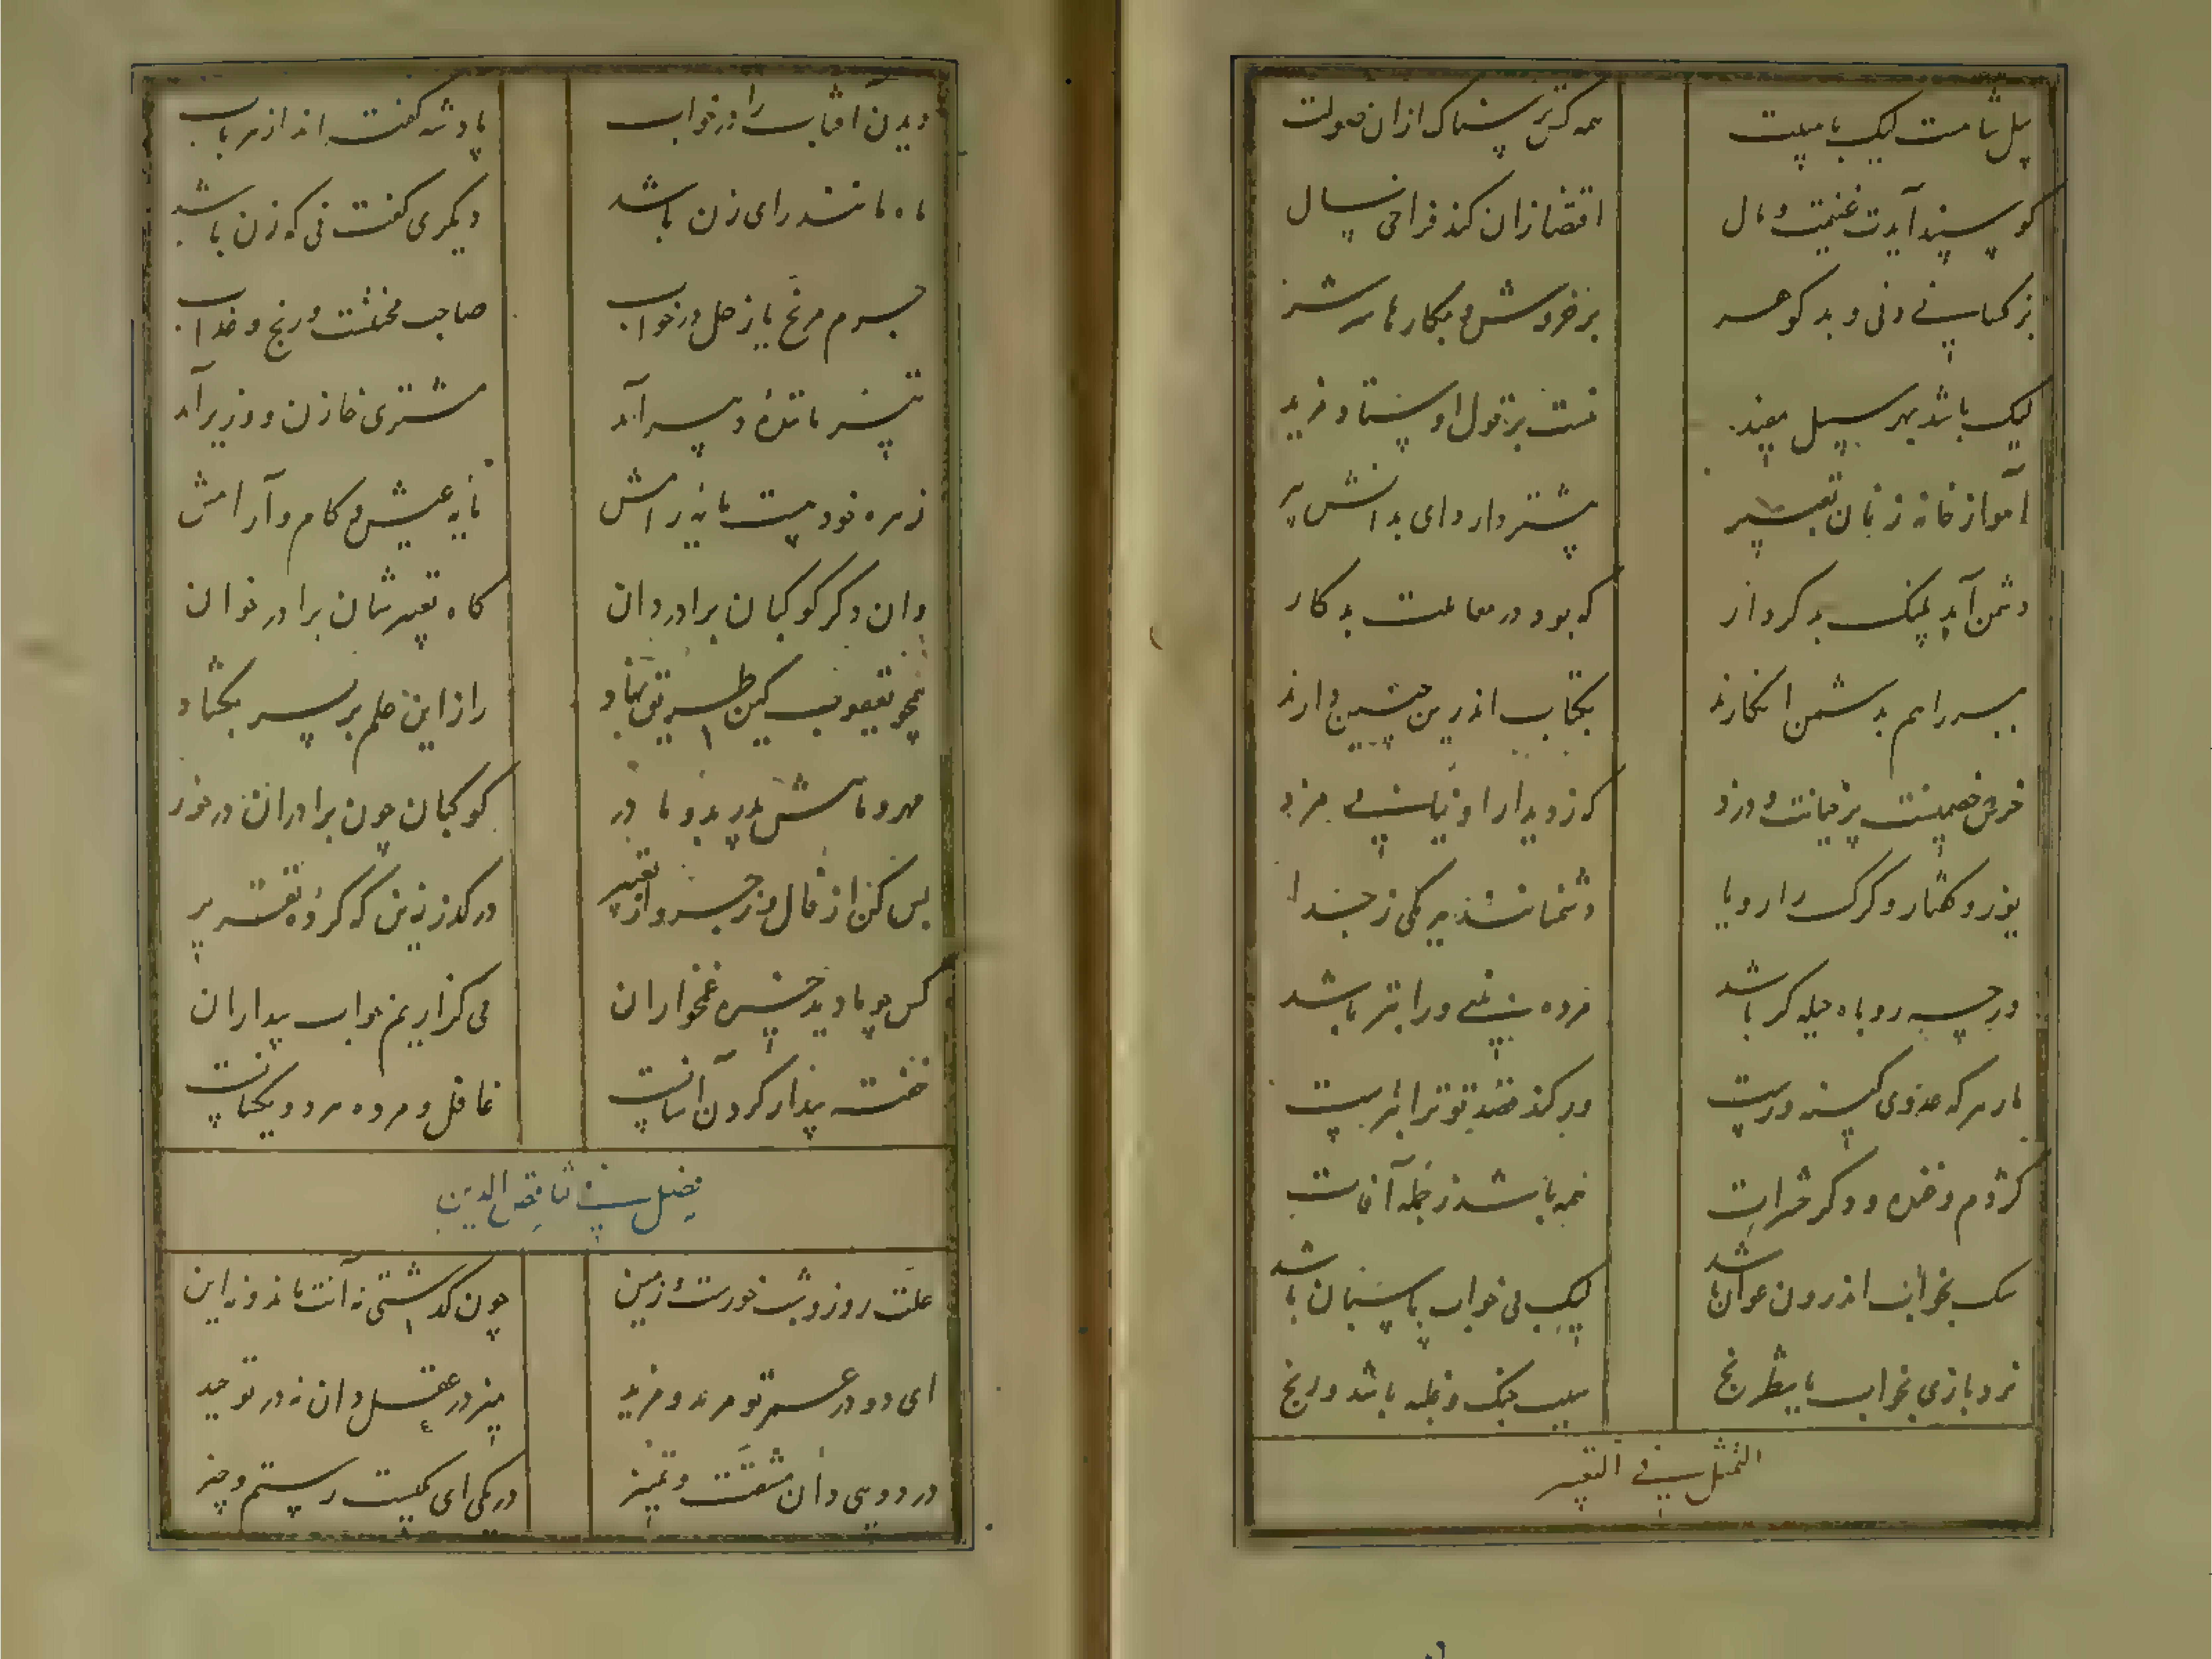 پیل شاهست لیک با هیبت همه کس ترسناک ازان صولت
کوسپند آیدت غنیمت و مال اقتضا زان کند فراخی سال
بز کسانی دنی و بد کوهر پر خروش و بکارها سرشر
لیک باشد بهر سبیل مفید نیست بر قول اوستاد مزید
آهو از خانه زنان تعبیر بیشتر دارد ای بدانش پیر
دشمن آید پلنک بدکردار که بود در معاملت بدکار
ببر را هم بدشمن انکارند بکتاب اندرین چنین دارند
خرس خصمیست پر خیانت و دزد که ز دیدار او نیابی مزد
یوز و کفتار و کرک را رویا دشمنانند هر یکی ز جدا
ورچه روباه حیله کر باشد مرده بینی ورا بتر باشد
مار هر که عدوی کینه ورست ور کند قصد تو ترا بترست
کژدم و غنده و دکر حشرات همه باشد ز جمله آفات
سک بخواب اندرون عوان باشد لیک بی خواب پاسبان باشد
نرد بازی بخواب یا شطرنج سبب جنک و غلبه باشد و رنج
التمثل فی التعبیر
دیدن آفتاب را در خواب پادشه کفته اند از هر باب
ماه مانند رای زن باشد دیکری کفت نی که زن باشد
جرم مریخ یا زحل در خواب صاحب محنتست و رنج و عذاب
تیر مانده دبیر آید مشتری خازن و وزیر آید
زهره خود هست مایه رامش مایه عیش و کام و آرامش
وان دکر کوکبان برادر دان کاه تعبیرشان برادر خوان
همچو یعقوب کین طریق نهاد راز این علم بر پسر بکشاد
مهر و ماهش پدر بد و مادر کوکبان چون برادران در خور
بس کن از فال و زجر و از تعبیر در کذر زین که کرده تقسیر
کس چو نادید خیره غمخواران می کزاریم خواب بیداران
خفته بیدار کردن آسانست غافل و مرده هر دو یکسانست
علت روز و شب خورست و زمین چون کذشتی نه آنت ماند و نه این
ای دو در عمر تو مرید و مزید نیز در عقل دان نه در توحید
در دویی دان مشقت و تمییز در یکی ای یکیست رستم و حیز